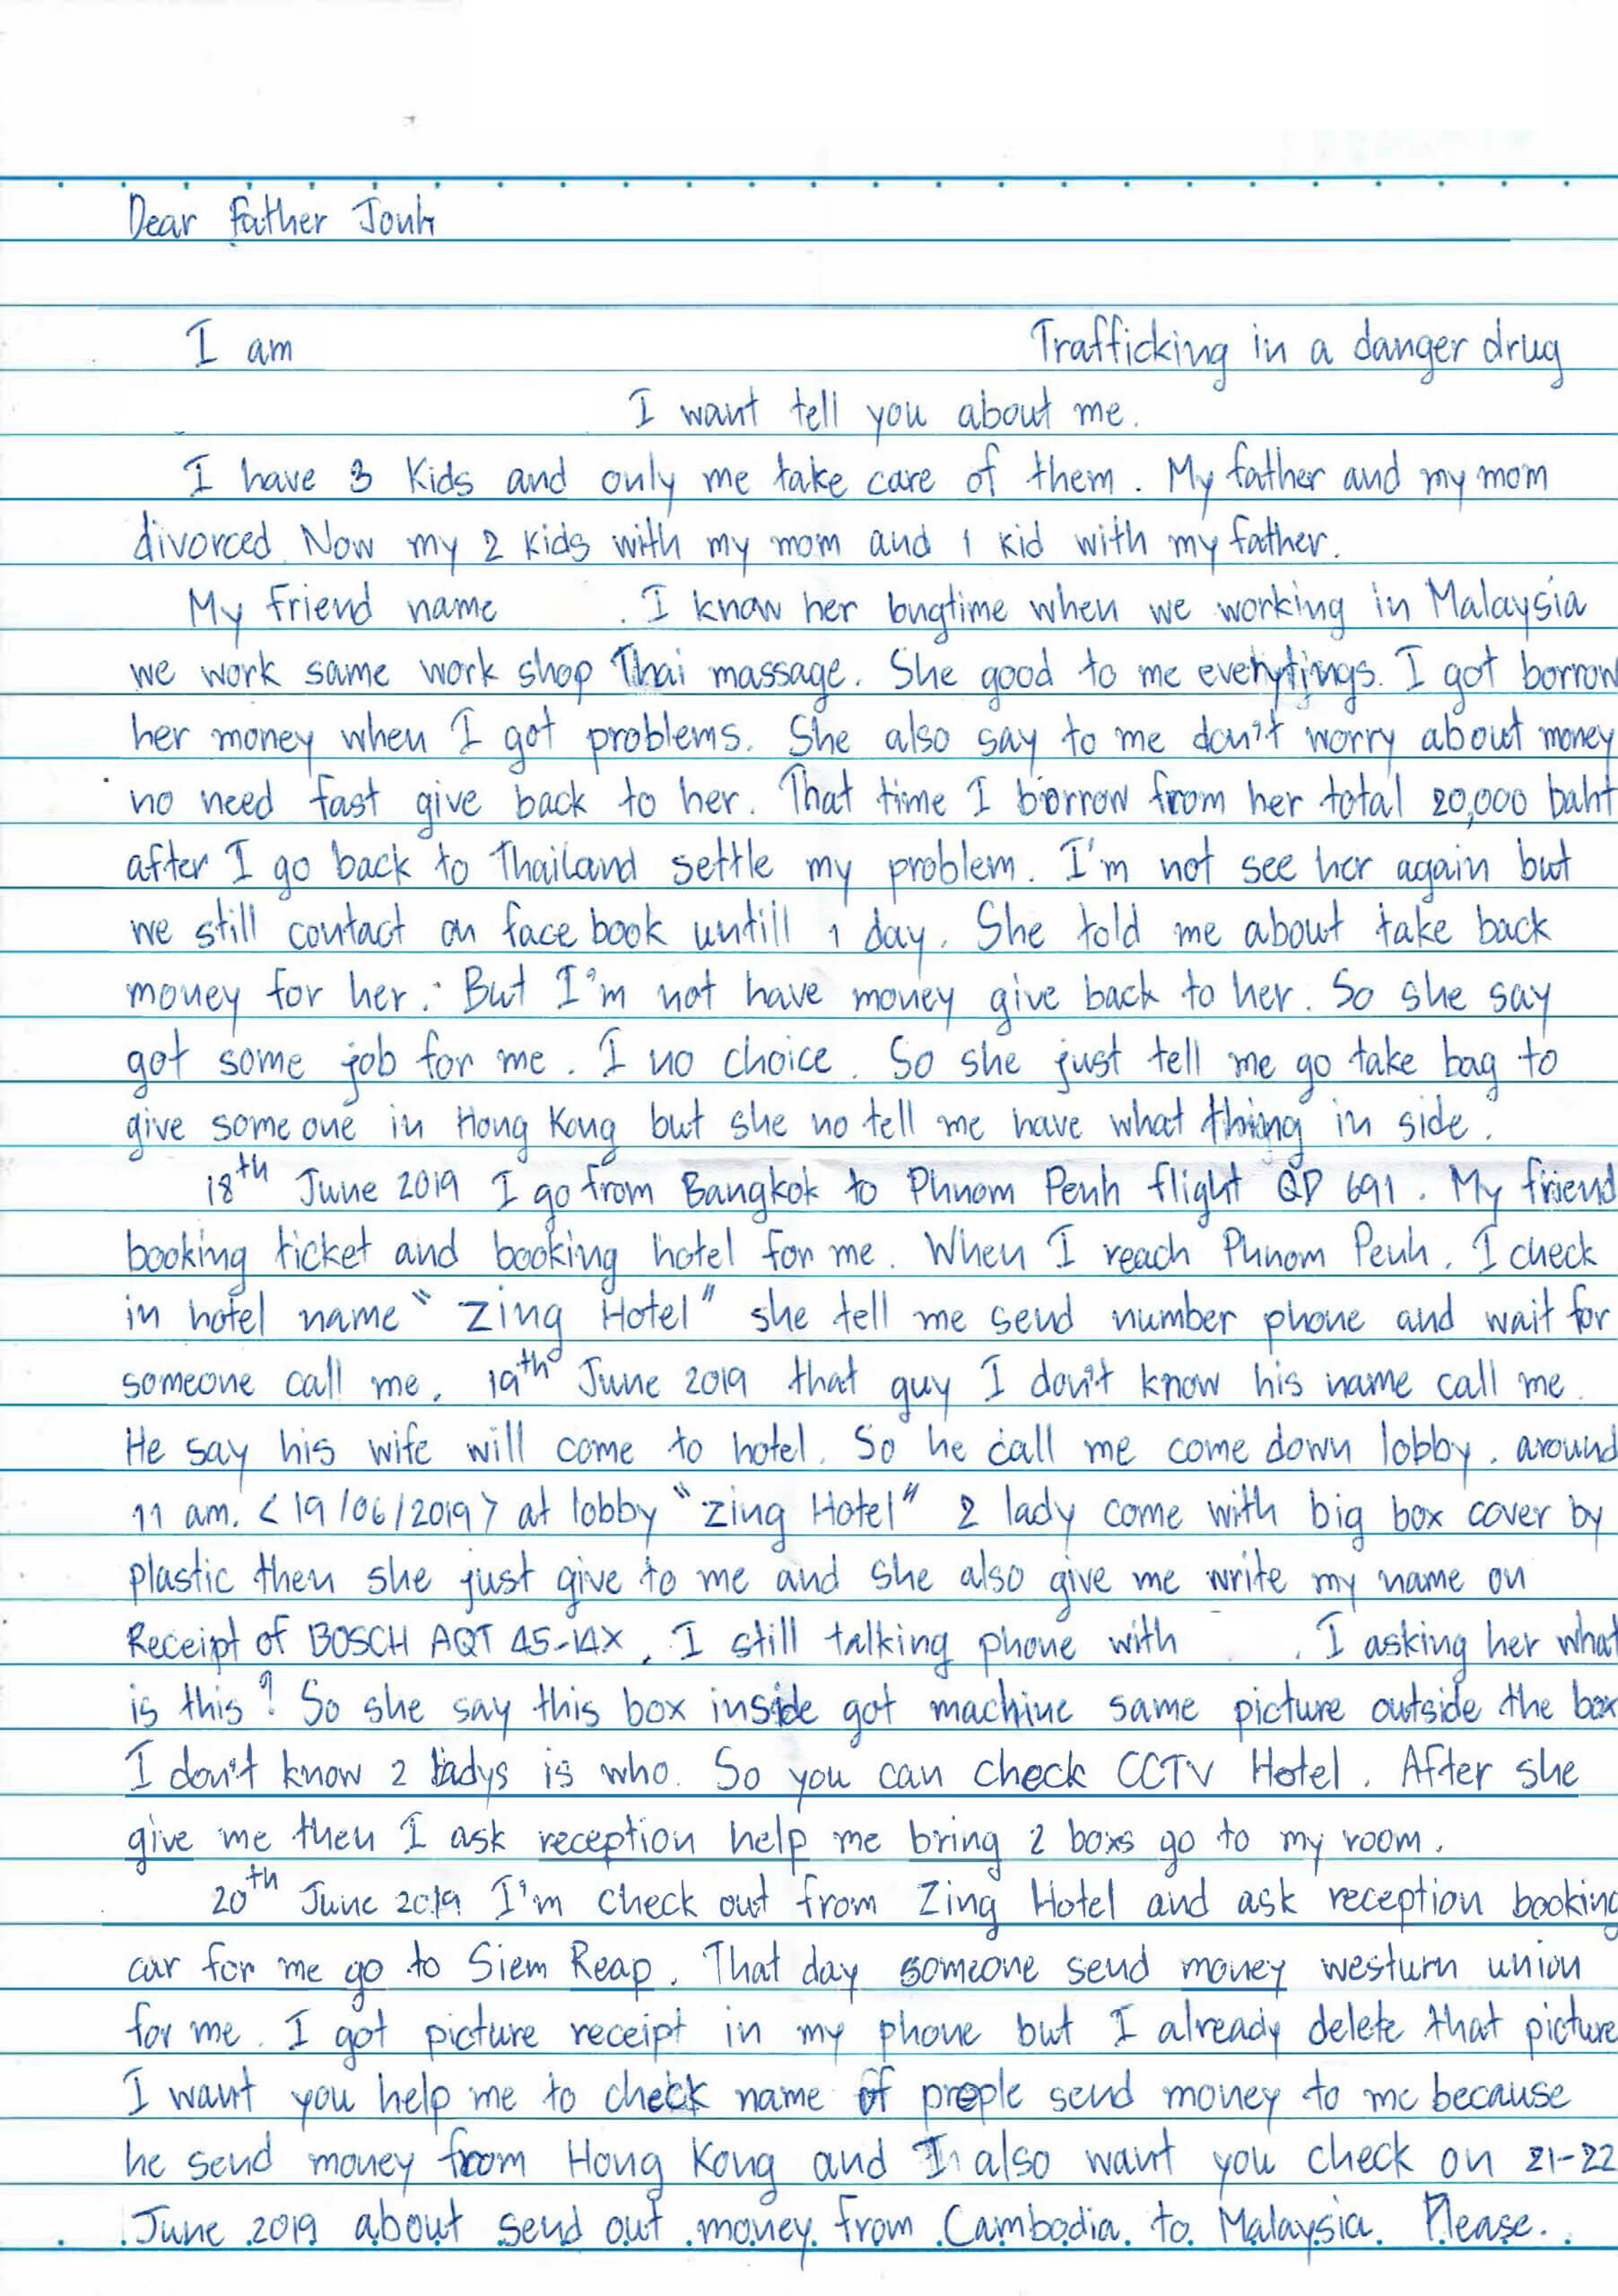 Dear Father Jonh
I am Trafficking in a danger drug
I want tell you about me.
I have 3 kids and only me take care of them. My father and my mom
divorced. Now my 2 kids with my mom and 1 kid with my father.
My friend name . I know her bugtime when we working in Malaysia
we work same work shop Thai massage. She good to me everytjings. I got borrow
her money when I got problems. She also say to me don't worry about money
no need fast give back to her. That time I borrow from her total 20,000 baht
after I go back to Thailand settle my problem. I'm not see her again but
we still contact on face book untill 1 day. She told me about take back
money for her. But I'm not have money give back to her. So she say
got some job for me. I no choice. So she just tell me go take bag to
give some one in Hong Kong but she no tell me have what thing in side.
18th June 2019 I go from Bangkok to Phnom Penh flight QD 691. My friend
booking ticket and booking hotel for me. When I reach Phnom Penh. I check
in hotel name " Zing Hotel" she tell me send number phone and wait for
someone call me. 19th June 2019 that guy I don't know his name call me.
He say his wife will come to hotel. So he call me come down lobby. around
11 am. <19/06/2019> at lobby "Zing Hotel" 2 lady come with big box cover by
plastic then she just give to me and she also give me write my name on
Receipt of BOSCH AQT 45-14X. I still talking phone with . I asking her what
is this? So she say this box inside got machine same picture outside the box
I don't know 2 ladys is who. So you can check CCTV Hotel. After she
give me then I ask reception help me bring 2 boxs go to my room.
20th June 2019 I'm check out from Zing Hotel and ask reception booking
car for me go to Siem Reap. That day someone send money westurn union
for me. I got picture receipt in my phone but I already delete that picture
I want you help me to check name of prople send money to me because
he send money from Hong Kong and I also want you check on 21-22
June 2019 about send out money from Cambodia to Malaysia. Please.